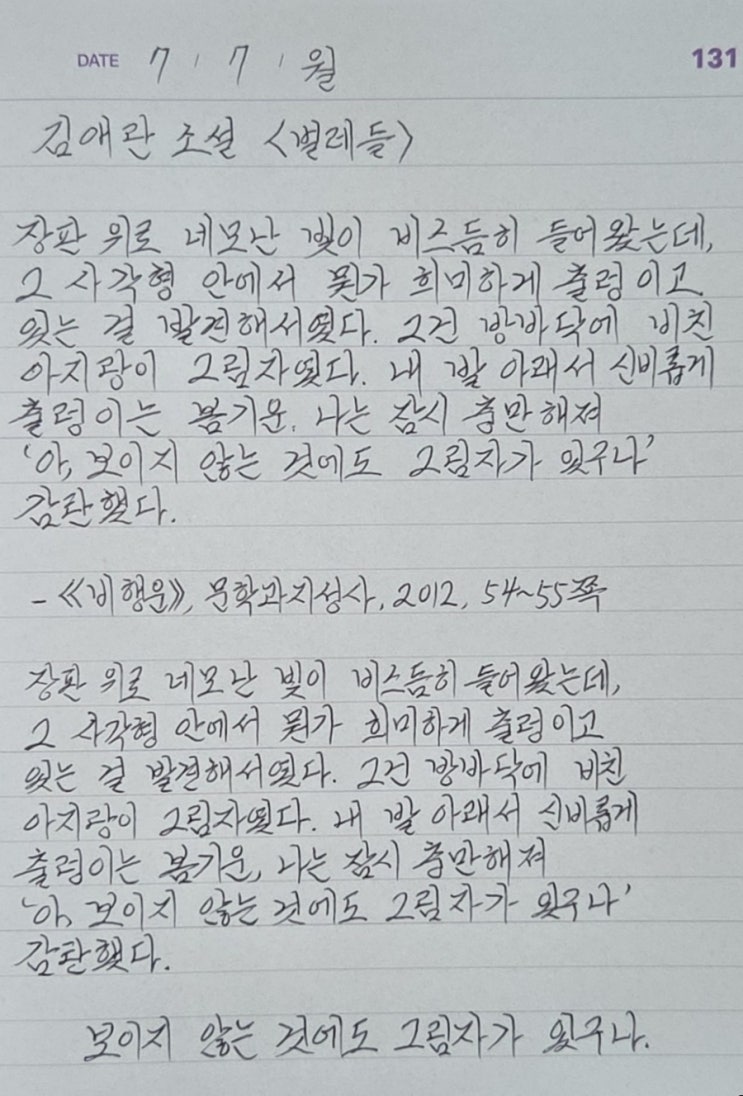 DATE 7 / 7 / 월 131
김애란 소설 〈벌레들〉
장판 위로 네모난 빛이 비스듬히 들어왔는데,
그 사각형 안에서 뭔가 희미하게 출렁이고
있는 걸 발견해서였다. 그건 방바닥에 비친
아지랑이 그림자였다. 내 발 아래서 신비롭게
출렁이는 봄기운. 나는 잠시 충만해져
'아, 보이지 않는 것에도 그림자가 있구나'
감탄했다.
- 《비행운》, 문학과지성사, 2012, 54~55쪽
장판 위로 네모난 빛이 비스듬히 들어왔는데,
그 사각형 안에서 뭔가 희미하게 출렁이고
있는 걸 발견해서였다. 그건 방바닥에 비친
아지랑이 그림자였다. 내 발 아래서 신비롭게
출렁이는 봄기운, 나는 잠시 충만해져
'아, 보이지 않는 것에도 그림자가 있구나'
감탄했다.
보이지 않는 것에도 그림자가 있구나.